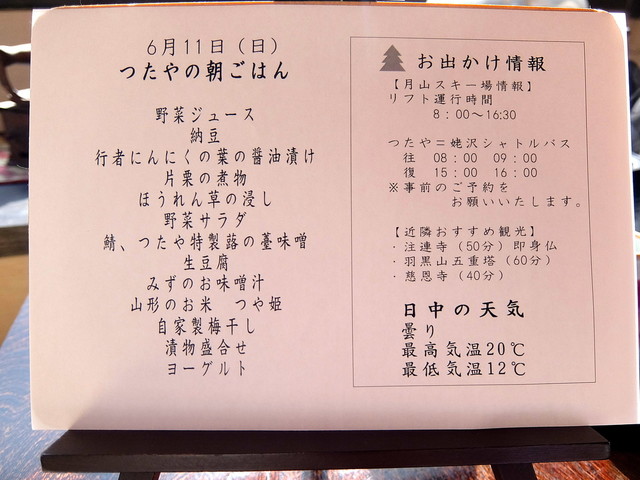 6月11日（日）
つたやの朝ごはん
野菜ジュース
納豆
行者にんにくの葉の醤油漬け
片栗の煮物
ほうれん草の浸し
野菜サラダ
鯖、つたや特製蕗の薹味噌
生豆腐
みずのお味噌汁
山形のお米　つや姫
自家製梅干し
漬物盛合せ
ヨーグルト
お出かけ情報
【月山スキー場情報】
リフト運行時間
8：00～16:30
つたや＝姥沢シャトルバス
往　08：00　09：00
復　15：00　16：00
※事前のご予約を
お願いいたします。
【近隣おすすめ観光】
・注連寺（50分）即身仏
・羽黒山五重塔（60分）
・慈恩寺（40分）
日中の天気
曇り
最高気温20℃
最低気温12℃